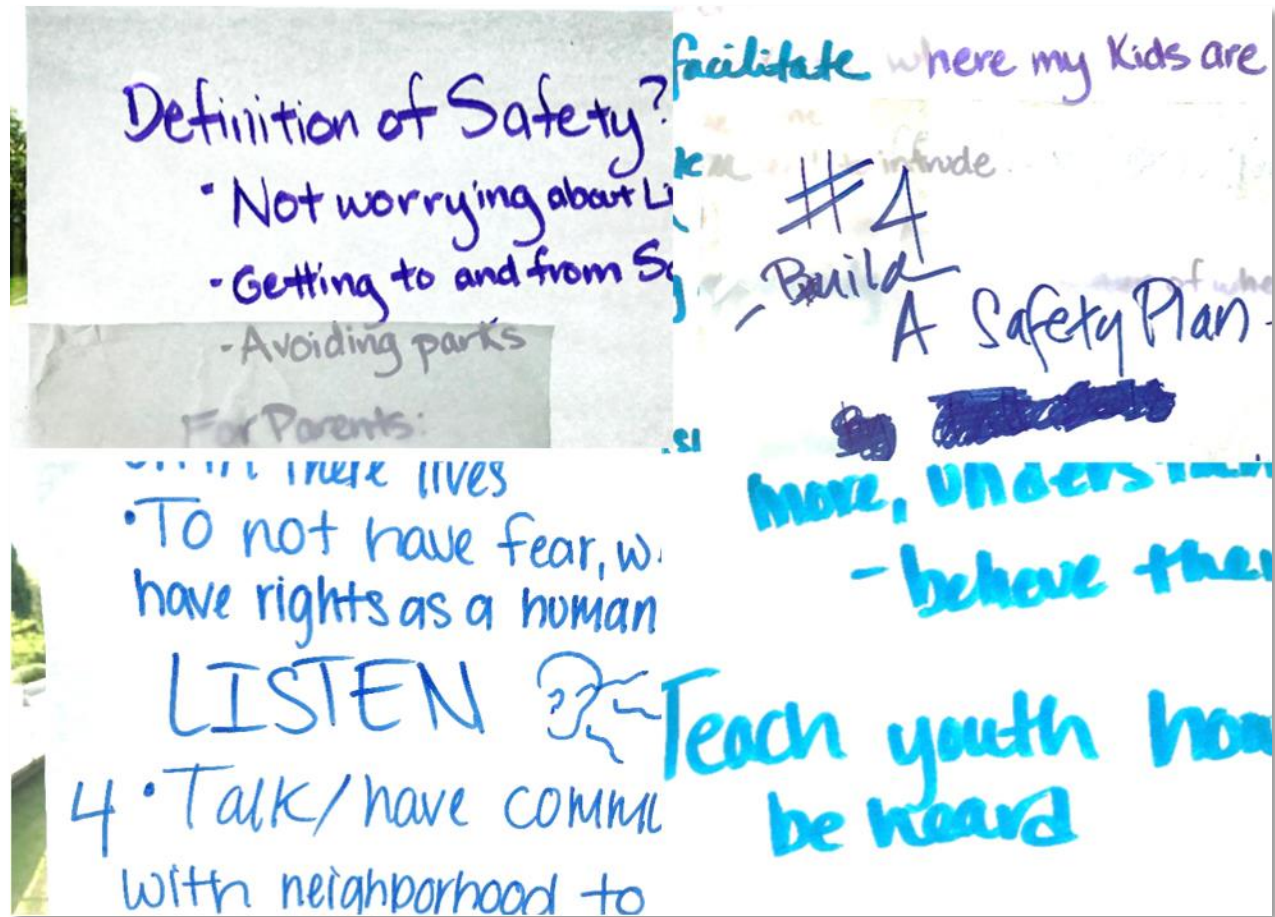 Definition of Safety?
• Not worrying about
- Getting to and from
- Avoiding parks
For Parents:
facilitate where my Kids are
intrude
#4
of
- Build
A Safety Plan -
By
in there lives
• To not have fear,
have rights as a human
LISTEN
4 • Talk/have
with neighborhood to
more,
- believe
Teach youth
be heard